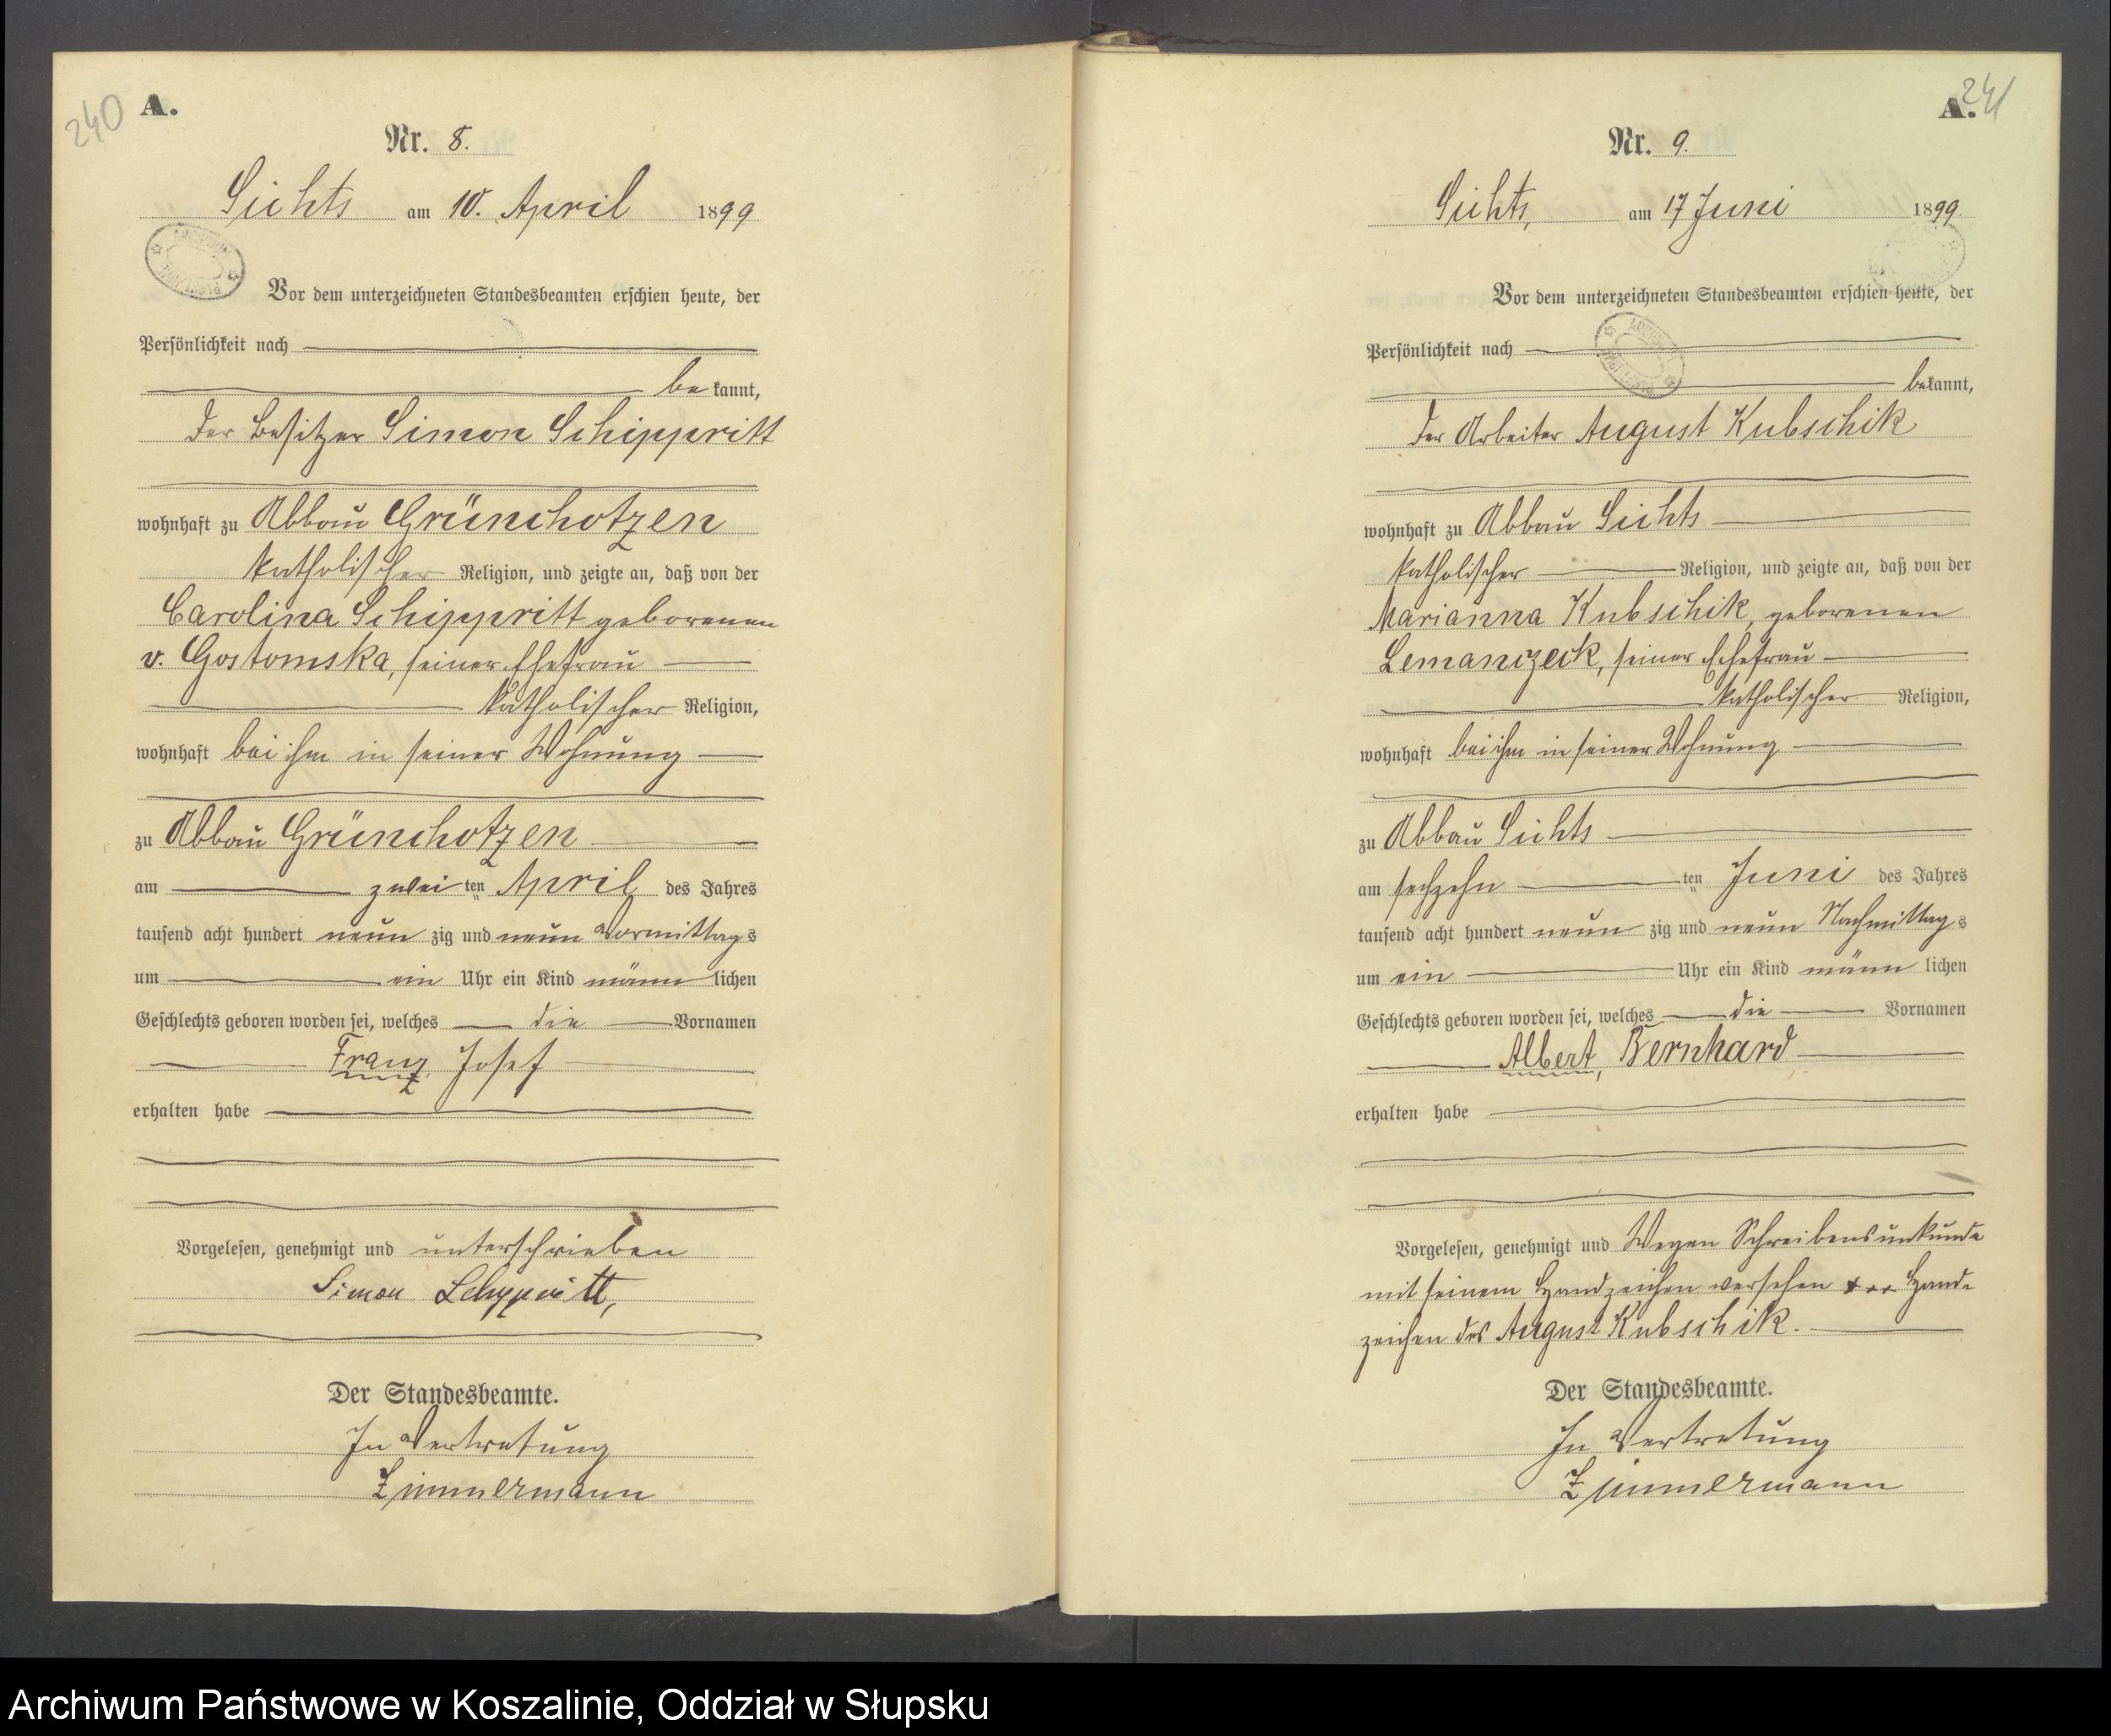 240
A.
Nr. 8.
Sichts am 10. April 1899
Vor dem unterzeichneten Standesbeamten erschien heute, der
Persönlichkeit nach
be kannt,
der Besitzer Simon Schippritt
wohnhaft zu Abbau Grünchotzen
katholischer Religion, und zeigte an, daß von der
Carolina Schippritt geborenen
v. Gostomska, seiner Ehefrau
katholischer Religion,
wohnhaft bei ihm in seiner Wohnung
zu Abbau Grünchotzen
am zwei ten April des Jahres
tausend acht hundert neun zig und neun Vormittags
um ein Uhr ein Kind männ lichen
Geschlechts geboren worden sei, welches die Vornamen
Franz Josef
erhalten habe
Vorgelesen, genehmigt und unterschrieben
Simon Schippritt,
Der Standesbeamte.
In Vertretung
Zimmermann
241
A.
Nr. 9.
Sichts, am 17 Juni 1899.
Vor dem unterzeichneten Standesbeamten erschien heute, der
Persönlichkeit nach
bekannt,
der Arbeiter August Kubschik
wohnhaft zu Abbau Sichts
katholischer Religion, und zeigte an, daß von der
Marianna Kubschik, geborenen
Lemanczeck, seiner Ehefrau
katholischer Religion,
wohnhaft bei ihm in seiner Wohnung
zu Abbau Sichts
am sechzehn ten Juni des Jahres
tausend acht hundert neun zig und neun Nachmittags
um ein Uhr ein Kind männ lichen
Geschlechts geboren worden sei, welches die Vornamen
Albert, Bernhard
erhalten habe
Vorgelesen, genehmigt und Wegen Schreibensunkunde
mit seinem Handzeichen versehen +++ Hand-
zeichen des August Kubschik.
Der Standesbeamte.
In Vertretung
Zimmermann
Archiwum Państwowe w Koszalinie, Oddział w Słupsku